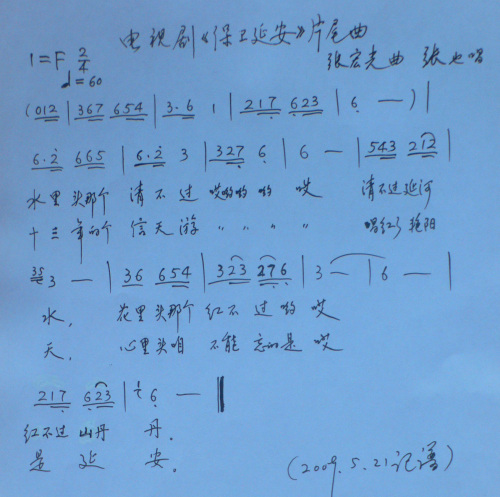 电视剧《保卫延安》片尾曲
1=F 2/4
♩=60
张宏光曲 张也唱
(012 | 367 654 | 3·6 1 | 217 623 | 6 — ) |
6·2 665 | 6·2 3 | 327 6 | 6 — | 543 212 |
水里头那个 清不过 哎哟哟哟 哎 清不过延河
十三年的个 信天游 〃 〃 〃 〃 唱红了艳阳
35 3 — | 36 654 | 323 276 | 3 — | 6 — |
水, 花里头那个 红不过哟 哎
天. 心里头咱 不能忘的是 哎
217 623 | 6 — ‖
红不过 山丹 丹.
是 延 安.
(2009.5.21记谱)